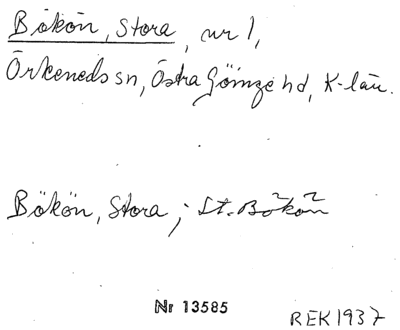 Bökön, Stora, nr 1,
Örkeneds sn, Östra Göinge hd, K-län.
Bökön, Stora; St. Bökön
Nr 13585
REK 1937